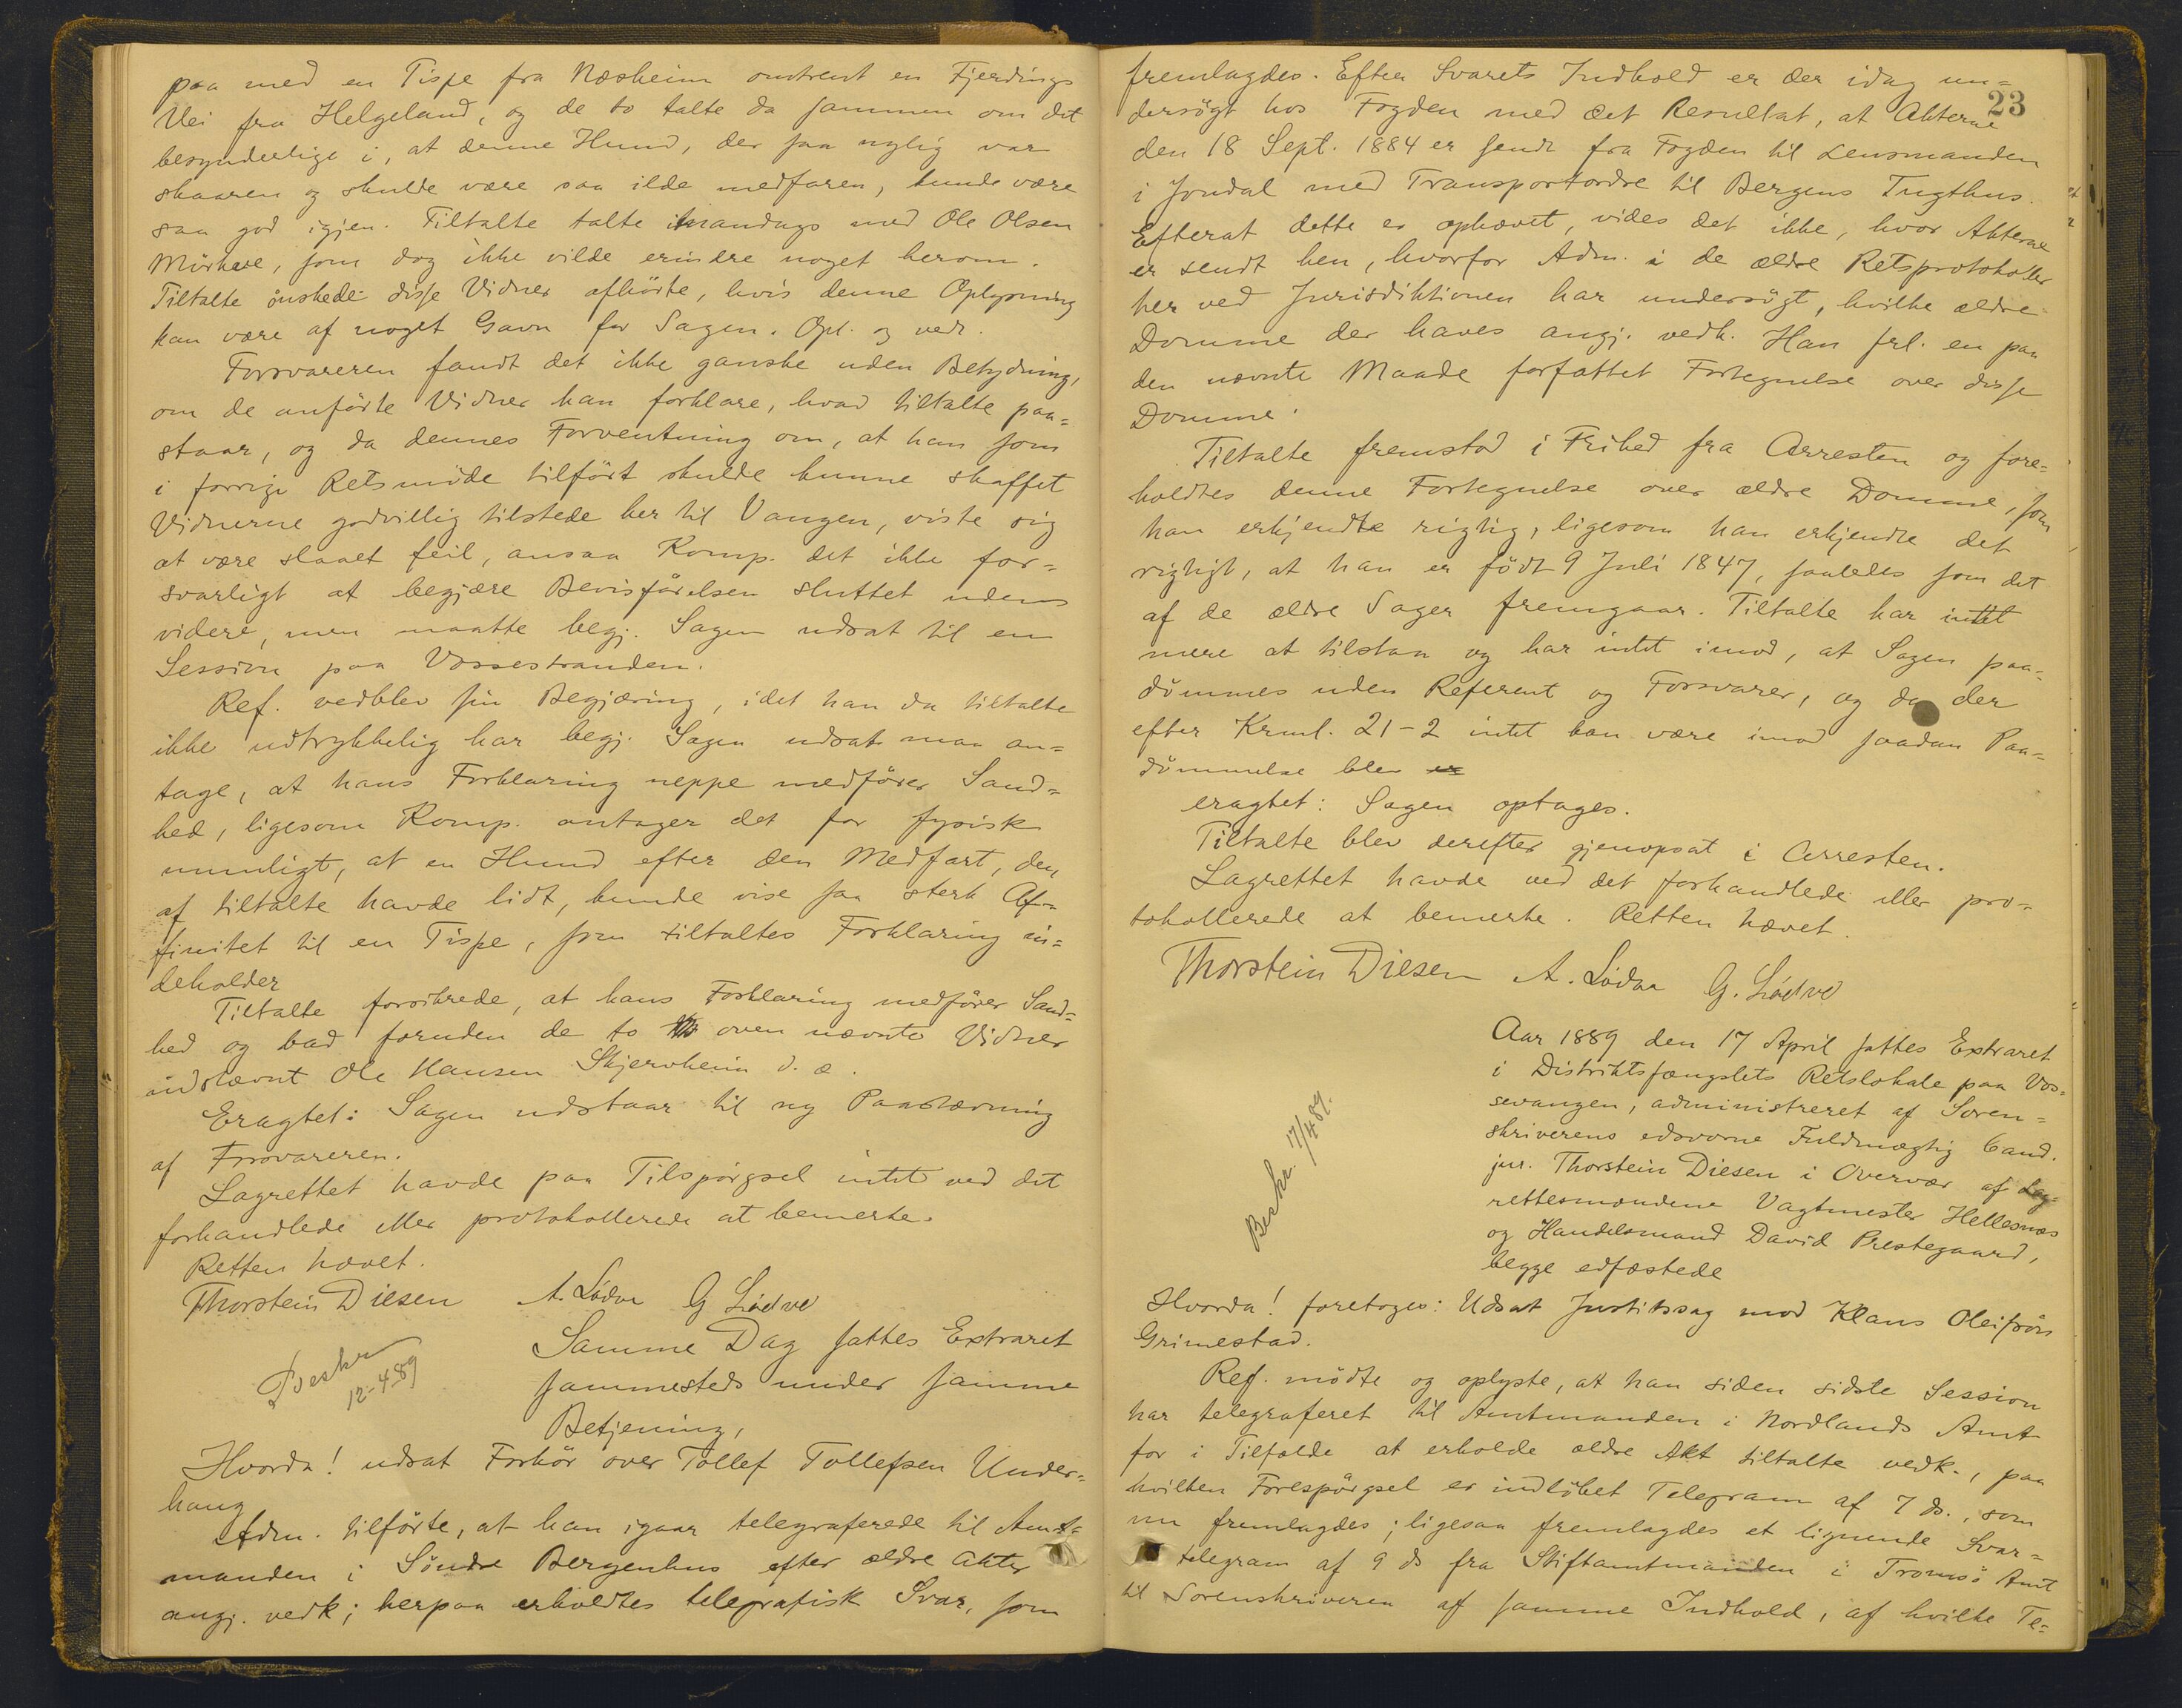 paa med en Tispe fra Næsheim omtrent en Fjerdings
Vei fra Helgeland, og de to talte da sammen om det
besynderlige i, at denne Hund, der saa nylig var
skaaren og skulde være saa ilde medfaren, kunde være
saa god igjen. Tiltalte talte imandags med Ole Olsen
Mørkve, som dog ikke vilde erindre noget herom.
Tiltalte ønskede disse Vidner afhørte, hvis denne Oplysning
kan være af noget Gavn for Sagen. Opl. og vedr.
Forsvareren fandt det ikke ganske uden Betydning,
om de anførte Vidner kan forklare, hvad tiltalte paa=
staar, og da dennes Forventning om, at han som
i forrige Retsmøde tilført skulde kunne skaffet
Vidnerne godvillig tilstede her til Vangen, viste sig
at være slaaet feil, ansaa Komp. det ikke for=
svarligt at begjære Bevisførelsen sluttet uden
videre, men maatte begj. Sagen udsat til en
Session paa Vossestranden.
Ref. vedblev sin Begjæring, idet han da tiltalte
ikke udtrykkelig har begj. Sagen udsat maa an=
tage, at hans Forklaring neppe medfører Sand=
hed, ligesom Komp. antager det for fysisk
umuligt, at en Hund efter den Medfart, den
af tiltalte havde lidt, kunde vise saa sterk Af=
finitet til en Tispe, som tiltaltes Forklaring in=
deholder
Tiltalte forsikrede, at hans Forklaring medfører Sand=
hed og bad foruden de to oven nævnte Vidner
indstævnt Ole Hansen Skjervheim d. æ.
Eragtet: Sagen udstaar til ny Paastævning
af Forsvareren.
Lagrettet havde paa Tilspørgsel intet ved det
forhandlede eller protokollerede at bemerke.
Retten hævet.
Thorstein Diesen A. Lødve G Lødve
Beskr
12-4 89
Samme Dag sattes Extraret
sammesteds under samme
Betjening,
Hvorda! udsat Forhør over Tollef Tollefsen Under=
haug
Adm. tilførte, at han igaar telegraferede til Amt=
manden i Søndre Bergenhus efter ældre Akter
angj. vedk; herpaa erholdtes telegrafisk Svar, som
23
fremlagdes. Efter Svarets Indhold er der idag un=
dersøgt hos Fogden med det Resultat, at Akterne
den 18 Sept. 1884 er sendt fra Fogden til Lensmanden
i Jondal med Transportordre til Bergens Tugthus.
Efterat dette er ophævet, vides det ikke, hvor Akterne
er sendt hen, hvorfor Adm. i de ældre Retsprotokoller
her ved Jurisdiktionen har undersøgt, hvilke ældre
Domme der haves angj. vedk. Han frl. en paa
den nævnte Maade forfattet Fortegnelse over disse
Domme.
Tiltalte fremstod i Frihed fra Arresten og fore=
holdtes denne Fortegnelse over ældre Domme, som
han erkjendte rigtig, ligesom han erkjendte det
rigtigt, at han er født 9 Juli 1847, saaledes som det
af de ældre Sager fremgaar. Tiltalte har intet
mere at tilstaa og har intet imod, at Sagen paa=
dømmes uden Referent og Forsvarer, og da der
efter Krml. 21-2 intet kan være imod saadan Paa=
dømmelse blev er
eragtet: Sagen optages.
Tiltalte blev derefter gjenopsat i Arresten.
Lagrettet havde ved det forhandlede eller pro=
tokollerede at bemerke. Retten hævet.
Thorstein Diesen A. Lødve G. Lødve
Beskr. 17/4 89.
Aar 1889 den 17 April sattes Extraret
i Distriktsfængslets Retslokale paa Vos=
sevangen, administreret af Soren=
skriverens edsvorne Fuldmægtig Cand.
jur. Thorstein Diesen i Overvær af Lag=
rettesmændene Vagtmester Hellesnæs
og Handelsmand David Prestegaard,
begge edfæstede
Hvorda! foretoges: Udsat Justitssag mod Klaus Oleisøn
Grimestad.
Ref. mødte og oplyste, at han siden sidste Session
har telegraferet til Amtmanden i Nordlands Amt
for i Tilfælde at erholde ældre Akt tiltalte vedk., paa
hvilken Forespørgsel er indløbet Telegram af 7 ds., som
nu fremlagdes; ligesaa fremlagdes et lignende Svar=
telegram af 9 ds fra Stiftamtmanden i Tromsø Amt
til Sorenskriveren af samme Indhold, af hvilke Te=